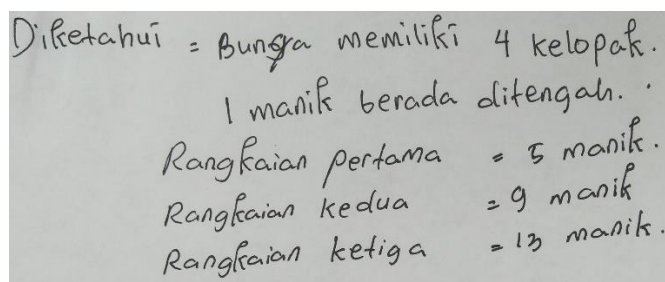 Diketahui = Bunga memiliki 4 kelopak.
1 manik berada ditengah.
Rangkaian pertama = 5 manik.
Rangkaian kedua = 9 manik
Rangkaian ketiga = 13 manik.